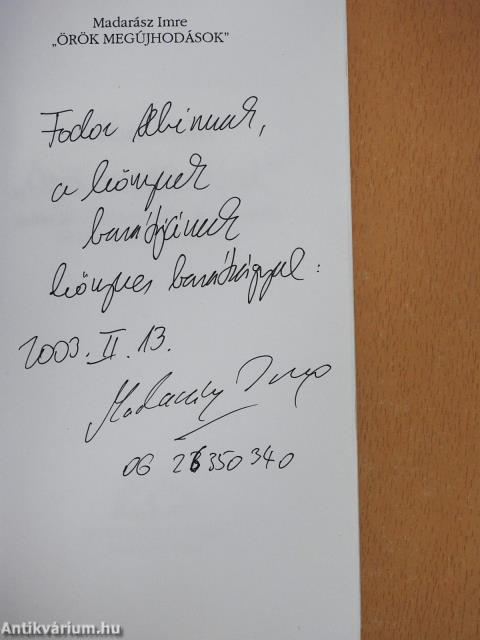 Madarász Imre
„ÖRÖK MEGÚJHODÁSOK”
Fodor Albinnak,
a könyvek
barátjának
könyves barátsággal:
2003. II. 13.
Madarász Imre
06 26 350 340
Antikvárium.hu